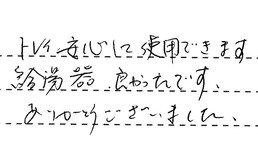 トイレ安心して使用できます
給湯器良かったです、
ありがとうございました、